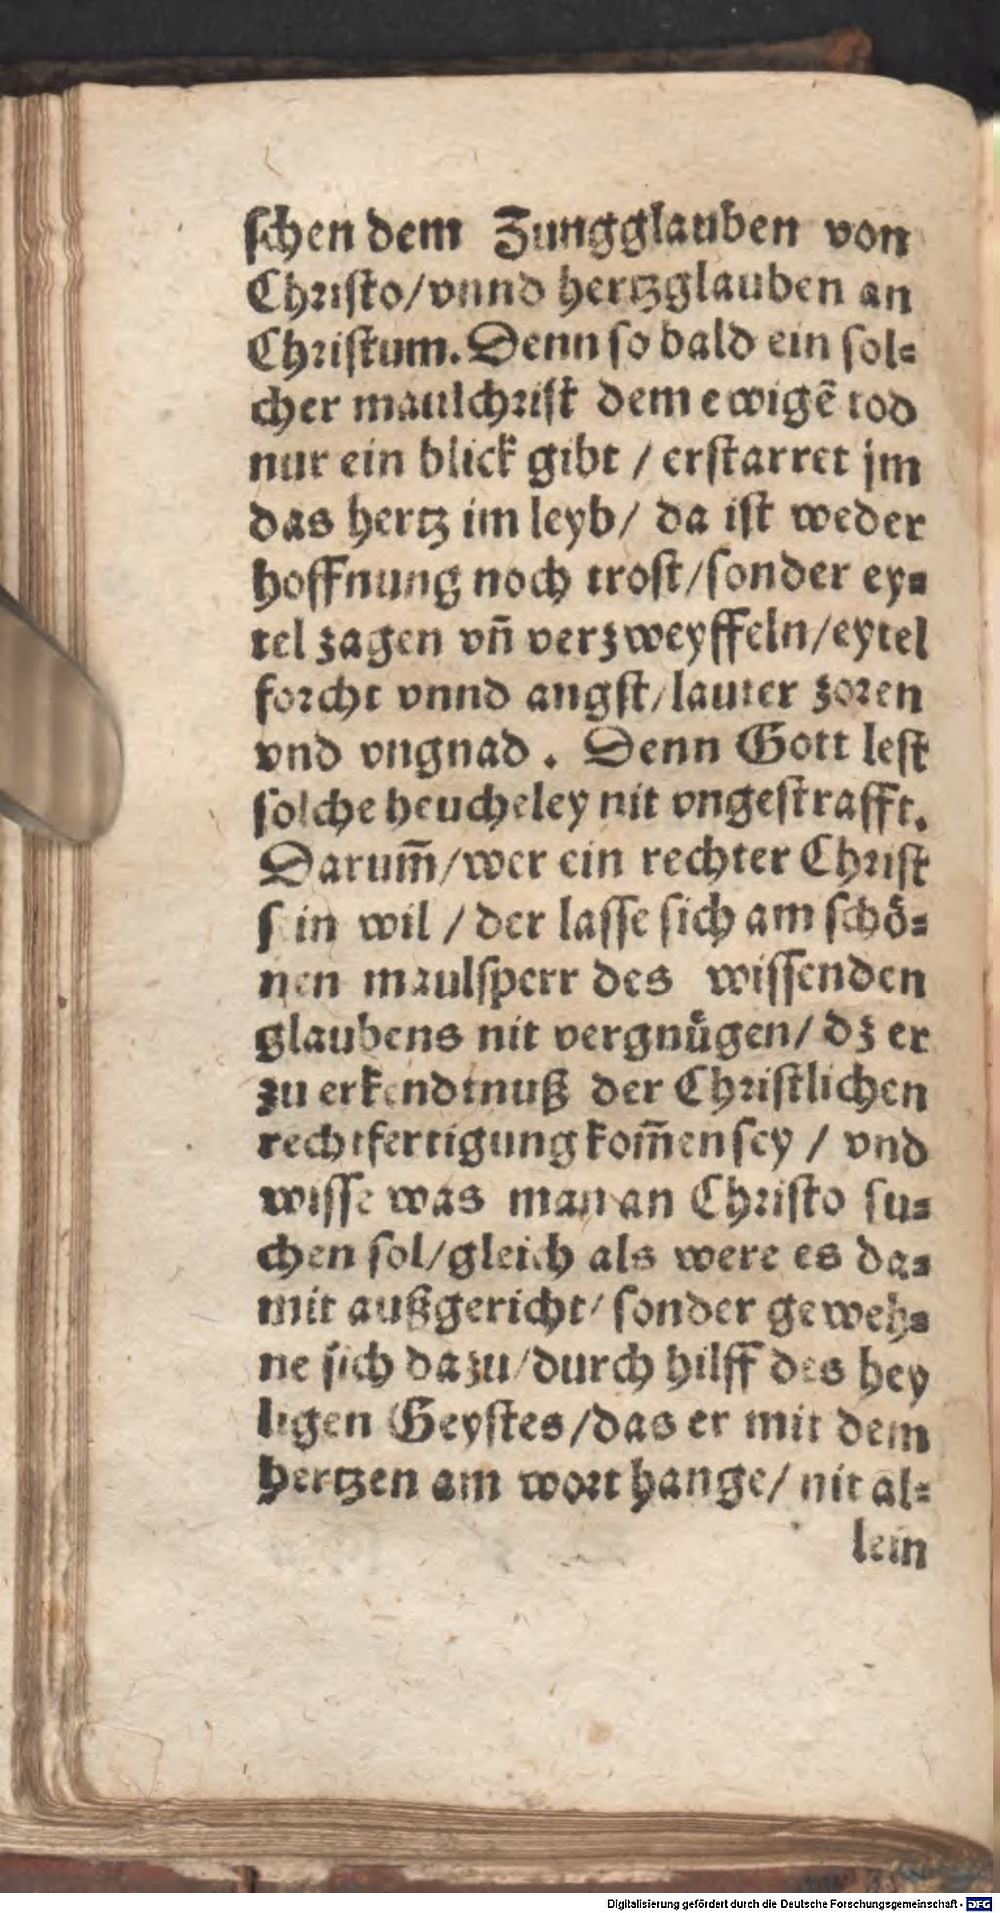 schen dem Zungglauben von
Christo/vnnd hertzglauben an
Christum. Denn so bald ein sol=
cher maulchrist dem ewigẽ tod
nur ein blick gibt / erstarret jm
das hertz im leyb/ da ist weder
hoffnung noch trost/sonder ey=
tel zagen vñ verzweyffeln/eytel
forcht vnnd angst/lauter zoren
vnd vngnad . Denn Gott lest
solche heucheley nit vngestrafft.
Darum̃/wer ein rechter Christ
sein wil / der lasse sich am schö=
nen maulsperr des wissenden
glaubens nit vergnuͤgen/ dz er
zu erkendtnuß der Christlichen
rechtfertigung kom̃en sey / vnd
wisse was man an Christo su=
chen sol/gleich als were es da=
mit außgericht/ sonder geweh=
ne sich dazu/durch hilff des hey
ligen Geystes/das er mit dem
hertzen am wort hange/ nit al=
lein
Digitalisierung gefördert durch die Deutsche Forschungsgemeinschaft - DFG